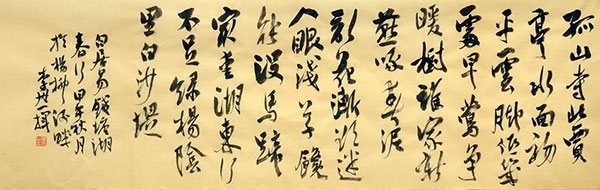 孤山寺北賈
亭水面初
平雲腳低幾
處早鶯爭
暖樹誰家新
燕啄春泥
亂花漸欲迷
人眼淺草纔
能沒馬蹄
最愛湖東行
不足綠楊陰
里白沙堤
白居易錢塘湖
春行甲午秋月
於楊柳河畔